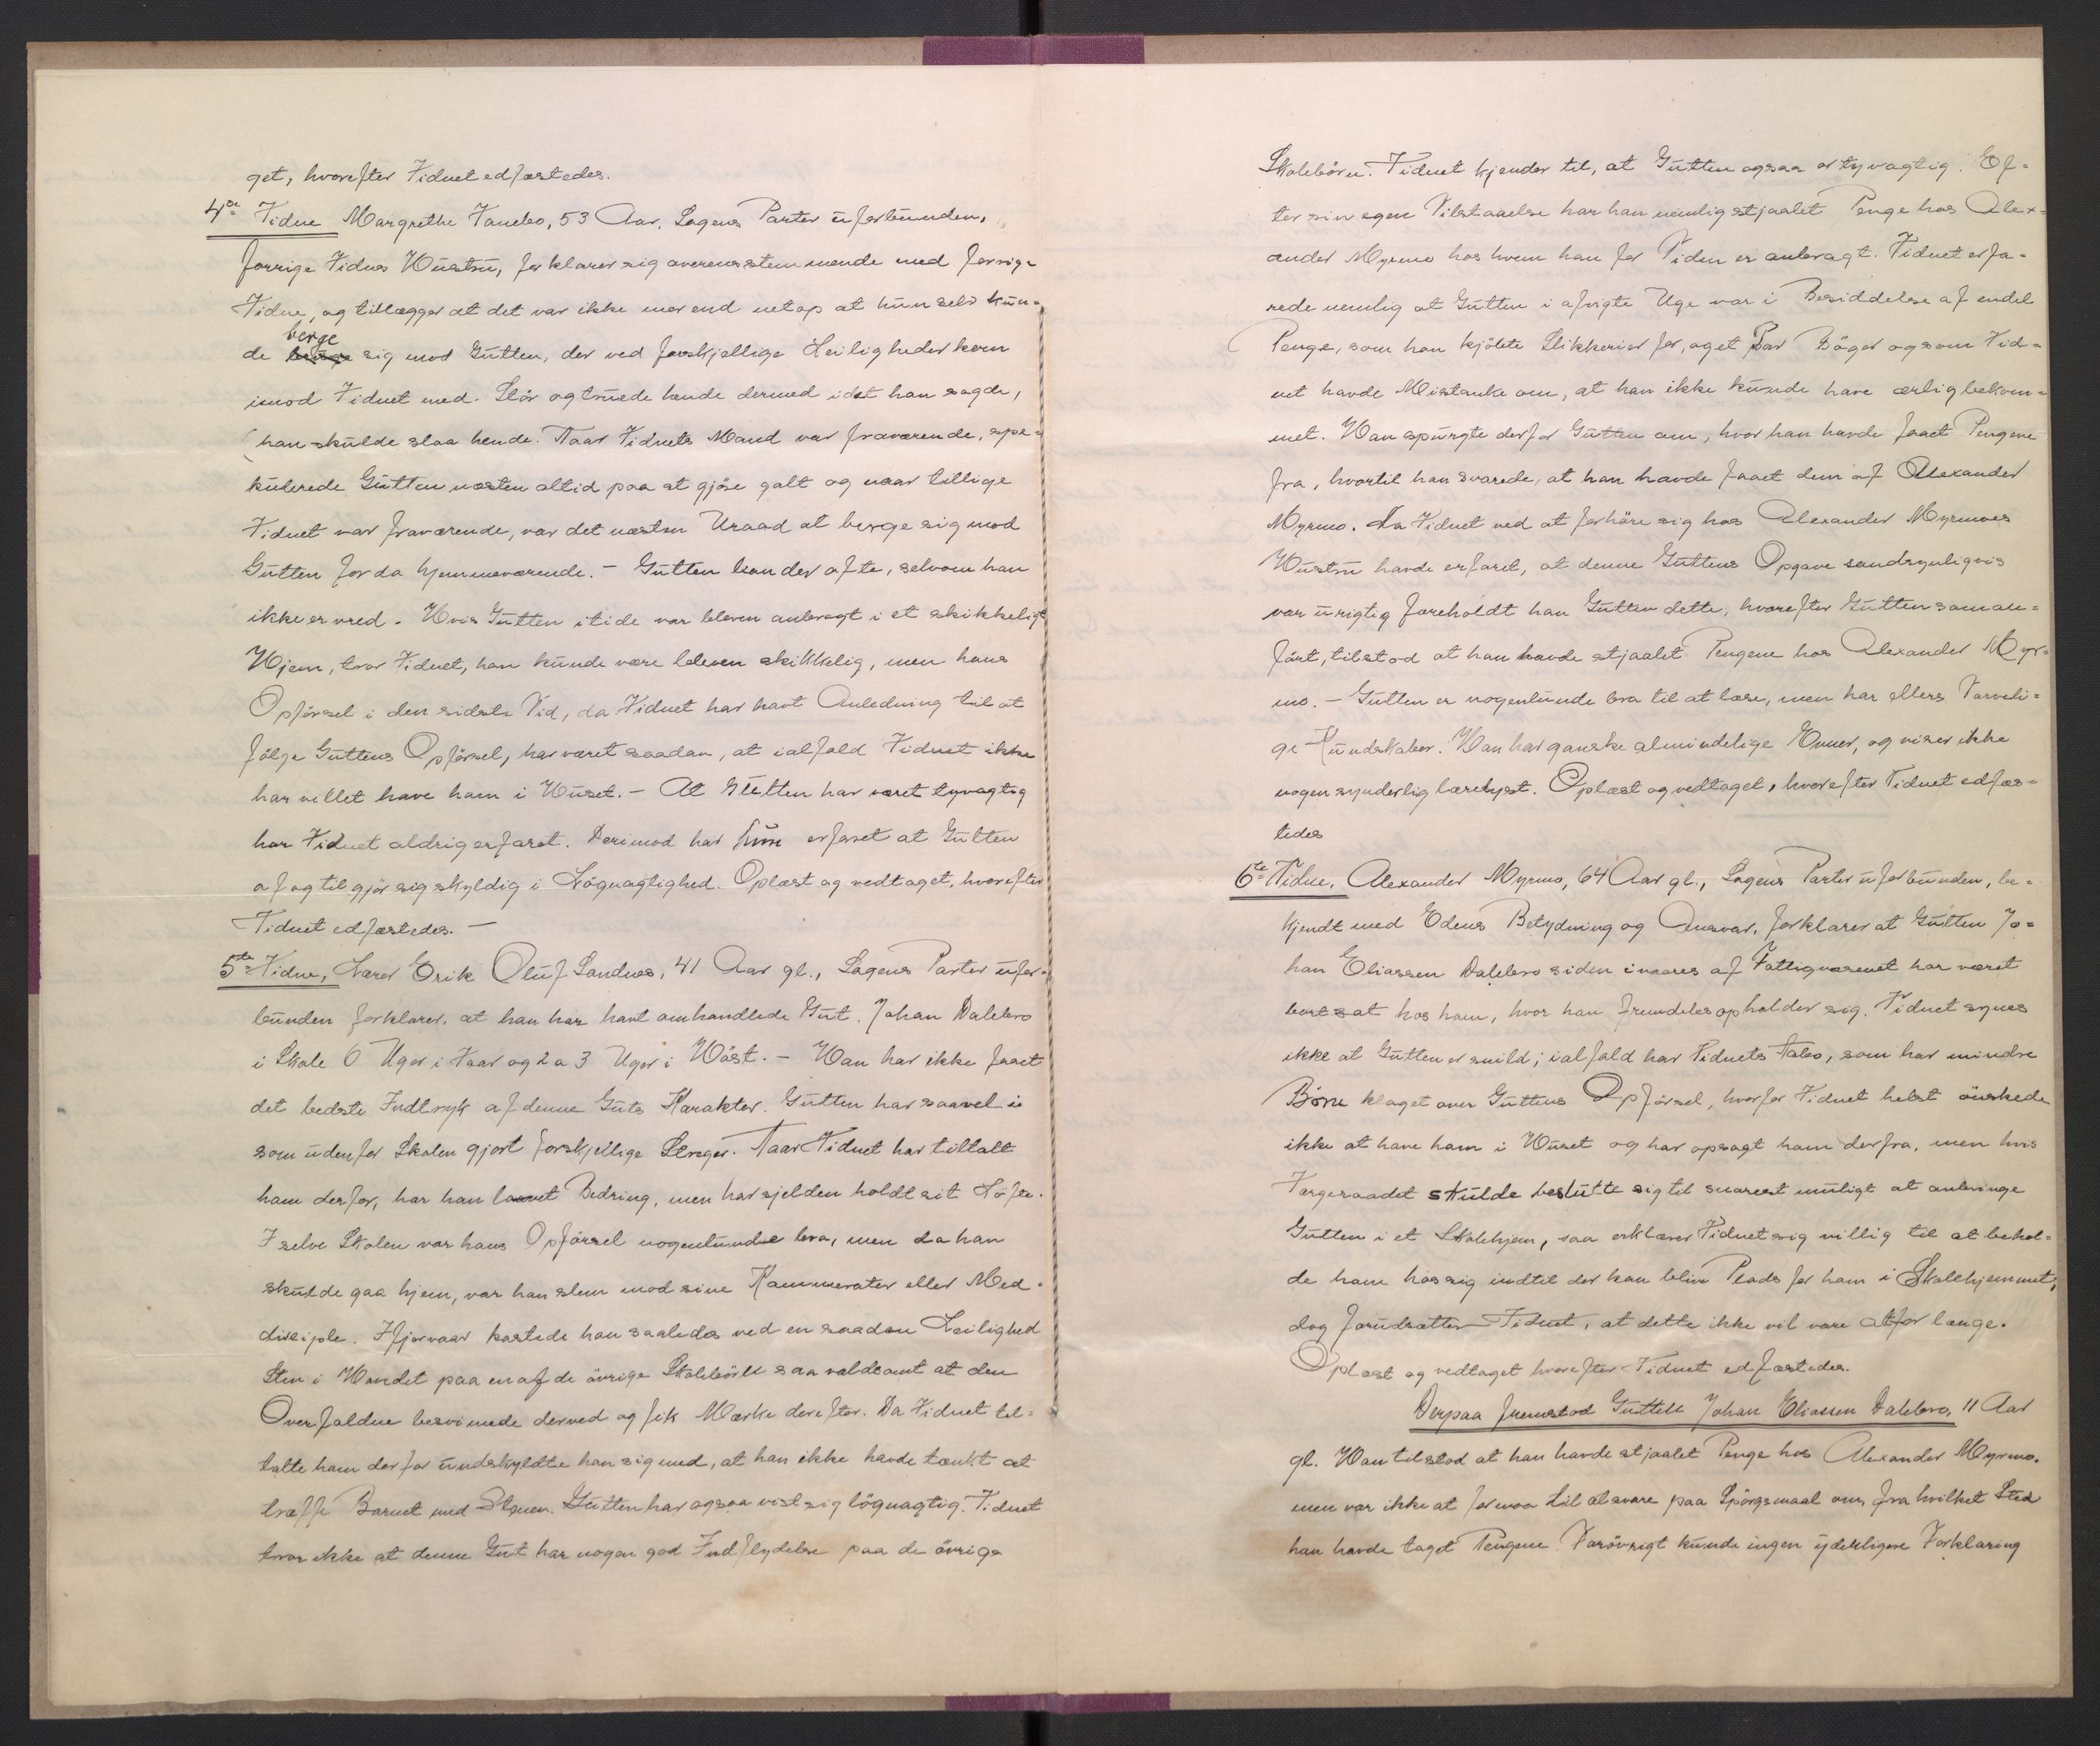 get, hvorefter Vidnet edfæstedes.
4de Vidne Margrethe Vanebo, 53 Aar, Sagens Parter uforbunden,
forrige Vidnes Hustru, forklarer sig overensstemmende med forrige
Vidne, og tillægger at det var ikke mer end netop at hun selv kun=
de berge sig mod Gutten, der ved forskjellige Leiligheder kom
imod Vidnet med Stör og truede hende dermed idet han sagde,
han skulde slaa hende. Naar Vidnets Mand var fraværende, spe=
kulerede Gutten næsten altid paa at gjöre galt og naar tillige
Vidnet var fraværende, var det næsten Uraad at berge sig mod
Gutten for da hjemmeværende. – Gutten bander ofte, selvom han
ikke er vred. Hvis Gutten itide var bleven anbragt i et skikkeligt
Hjem, tror Vidnet, han kunde være bleven skikkelig, men hans
Opförsel i den sidste Tid, da Vidnet har havt Anledning til at
fölge Guttens Opförsel, har været saadan, at ialfald Vidnet ikke
har villet have ham i Huset. – At Gutten har været tyvagtig
har Vidnet aldrig erfaret. Derimod har hun erfaret at Gutten
af og til gjör sig skyldig i Lögnagtighed. Oplæst og vedtaget, hvorefter
Vidnet edfæstedes. –
5te Vidne, Lærer Erik Oluf Sandnes, 41 Aar gl., Sagens Parter ufor=
bunden forklarer, at han har havt omhandlede Gut, Johan Dalebro
i Skole 6 Uger i Vaar og 2 a 3 Uger i Höst. – Han har ikke faaet
det bedste Indtryk af denne Guts Karakter. Gutten har saavel i
som udenfor Skolen gjort forskjellige Streger. Naar Vidnet har tiltalt
ham derfor, har han lovet Bedring, men har sjelden holdt sit Löfte.
I selve Skolen var hans Opförsel nogenlunde bra, men da han
skulde gaa hjem, var han slem mod sine Kammerater eller Med=
disciple. Ifjorvaar kastede han saaledes ved en saadan Leilighed
Sten i Hovedet paa en af de övrige Skolebörn saa voldsomt at den
Overfaldne besvimede derved og fik Mærke derefter. Da Vidnet til=
talte ham derfor undskyldte han sig med, at han ikke havde tænkt at
træffe Barnet med Stenen. Gutten har ogsaa vist sig lögnagtig. Vidnet
tror ikke at denne Gut har nogen god Indflydelse paa de övrige
Skolebörn. Vidnet kjender til, at Gutten ogsaa er tyvagtig. Ef=
ter sin egen Tilstaaelse har han nemlig stjaalet Penge hos Alex=
ander Myrmo hos hvem han for Tiden er anbragt. Vidnet erfa=
rede nemlig at Gutten i afvigte Uge var i Besiddelse af endel
Penge, som han kjöbte Slikkerier for, og et Par Böger og som Vid=
net havde Mistanke om, at han ikke kunde have ærlig bekom=
met. Han spurgte derfor Gutten om, hvor han havde faaet Pengene
fra, hvortil han svarede, at han havde faaet dem af Alexander
Myrmo. Da Vidnet ved at forhöre sig hos Alexander Myrmoes
Hustru havde erfaret, at denne Guttens Opgave sandsynligvis
var urigtig foreholdt han Gutten dette, hvorefter Gutten som an=
fört, tilstod at han havde stjaalet Pengene hos Alexander Myr=
mo. – Gutten er nogenlunde bra til at læse, men har ellers Tarveli=
ge Kundskaber. Han har ganske almindelige Evner, og viser ikke
nogen synderlig lærelyst. Oplæst og vedtaget, hvorefter Vidnet edfæs=
tedes
6te Vidne, Alexander Myrmo, 64 Aar gl., Sagens Parter uforbunden, be=
kjendt med Edens Betydning og Ansvar, forklarer at Gutten Jo=
han Eliassen Dalebro siden ivaares af Fattigvæsenet har været
bortsat hos ham, hvor han fremdeles opholder sig. Vidnet synes
ikke at Gutten er snild; ialfald har Vidnets Nabo, som har mindre
Börn klaget over Guttens Opförsel, hvorfor Vidnet helst önskede
ikke at have ham i Huset og har opsagt ham derfra, men hvis
Værgeraadet skulde beslutte sig til snarest muligt at anbringe
Gutten i et Skolehjem, saa erklærer Vidnet sig villig til at behol=
de ham hos sig indtil der kan blive Plads for ham i Skolehjemmet;
dog forudsætter Vidnet, at dette ikke vil vare altfor længe.
Oplæst og vedtaget hvorefter Vidnet edfæstedes.
Derpaa fremstod Gutten Johan Eliassen Dalebro, 11 Aar
gl. Han tilstod at han havde stjaalet Penge hos Alexander Myrmo.
men var ikke at formaa til at svare paa Spörgsmaal om, fra hvilket Sted
han havde taget Pengene. Forövrigt kunde ingen yderligere Forklaring